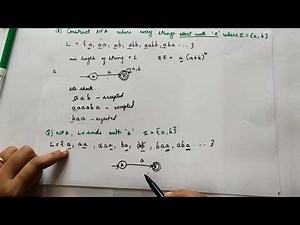 Q) Construct NFA where every string start with 'a' where Σ = {a, b}
L = {a, aa, ab, abb, aabb, aaba ... }
min length of string = 1
RE = a (a+b)*
a
a, b
aab - accepted
aaaaba - accepted
baa - rejected
Q) NFA, L = ends with 'a' Σ = {a, b}
L = { a, aa, aaa, ba, baa, aba ... }
A a B